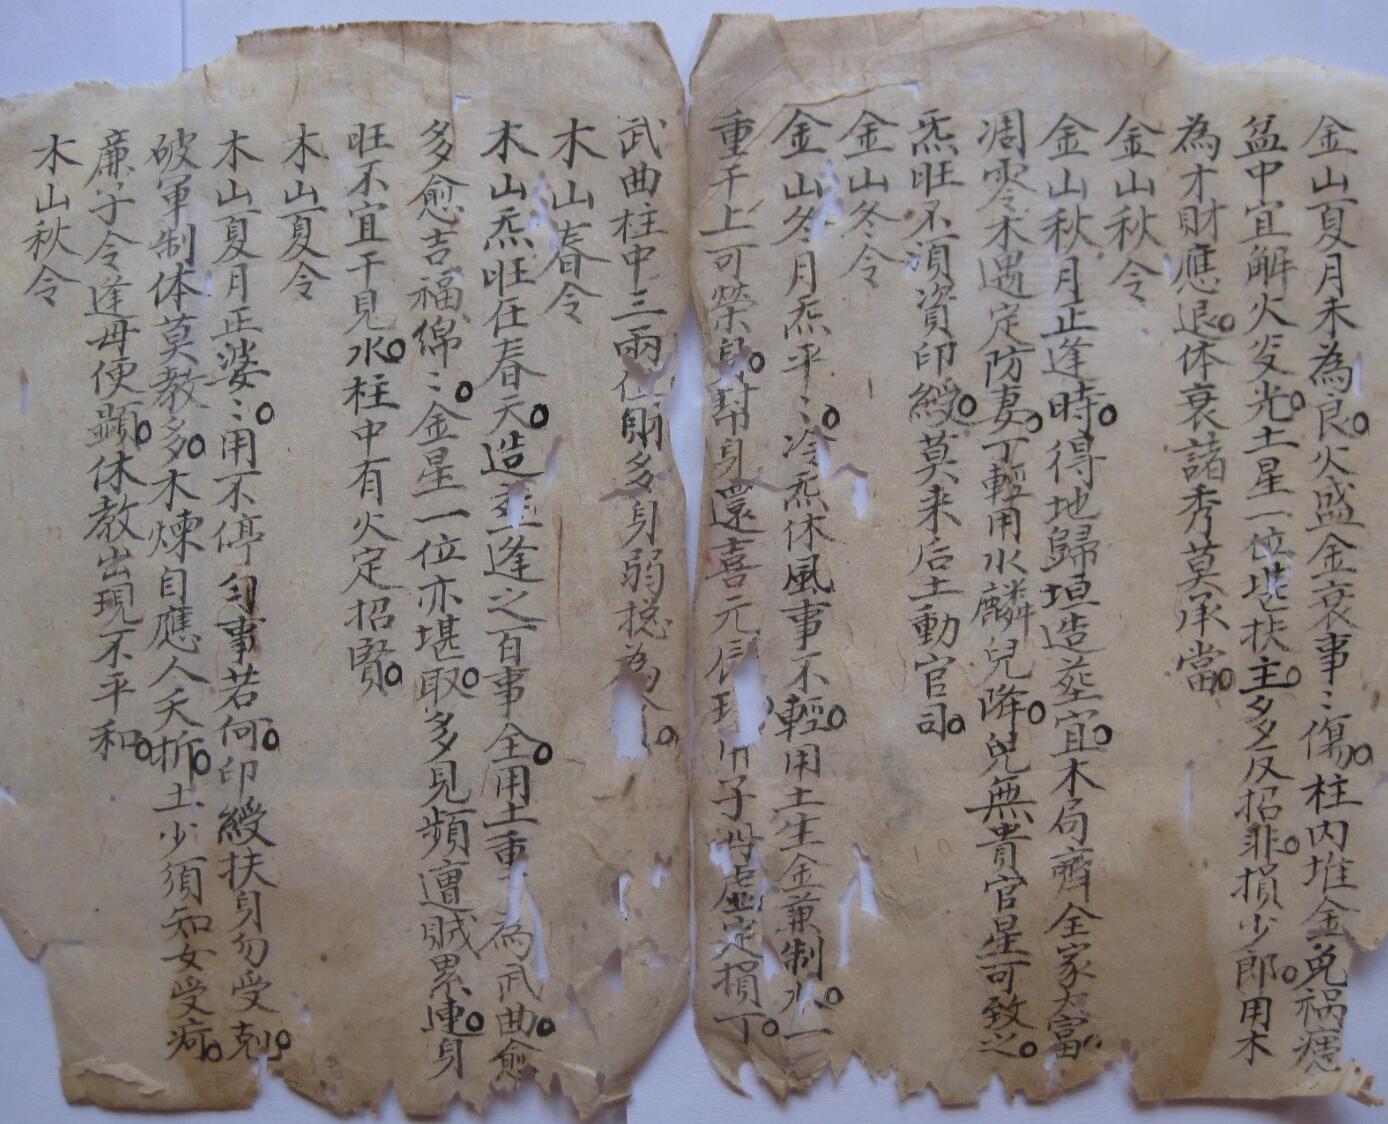 金山夏月未為良火盛金衰事〻傷柱內堆金免禍
盆中宜解火炎光土星一位堪扶主多多反招非損少郎用木
為才財應退体衰諸秀莫承當
金山秋令
金山秋月正逢時得地歸垣造塟宜木局齊全家大富
凋零木遇定防妻丁輕用水麟兒降兒無貴官星可致之
炁旺不須資印綬莫来后土動官司
金山冬令
金山冬月炁平〻冷炁休風事不輕用土生金兼制水一
重干上可榮身幇身還喜元子虛定損丁
武曲柱中三兩位多身弱
木山春令
木山炁旺在春天造塟逢之百事全用土重為武曲愈
多愈吉福綿〻金星一位亦堪取多見頻遭賊累連身
旺不宜干見水柱中有火定招賢
木山夏令
木山夏月正婆〻用不停勻事若何印綬扶身勿受剋
破軍制体莫教多木煉自應人夭折土少須知女受疴
廉子令逢母便顯休教出現不平和
木山秋令